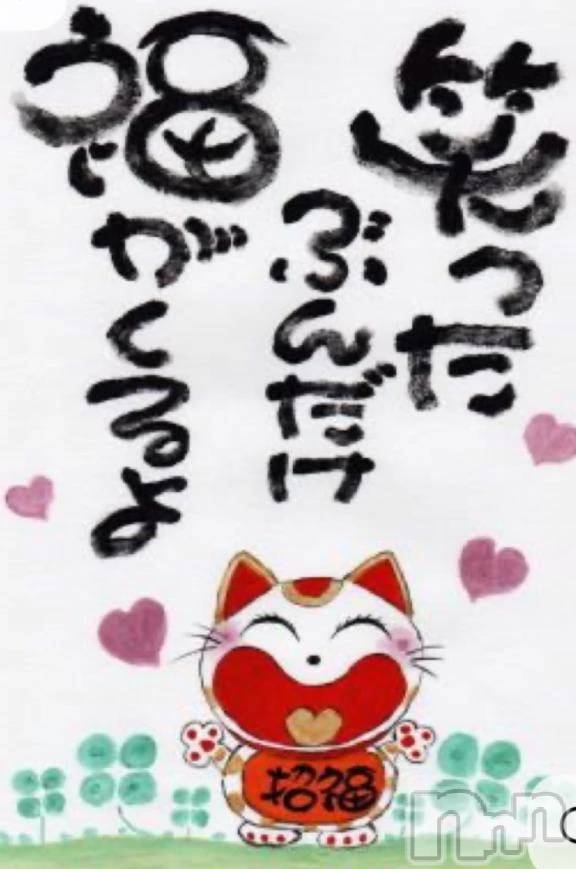 笑った
ぶんだけ
福がくるよ
招福